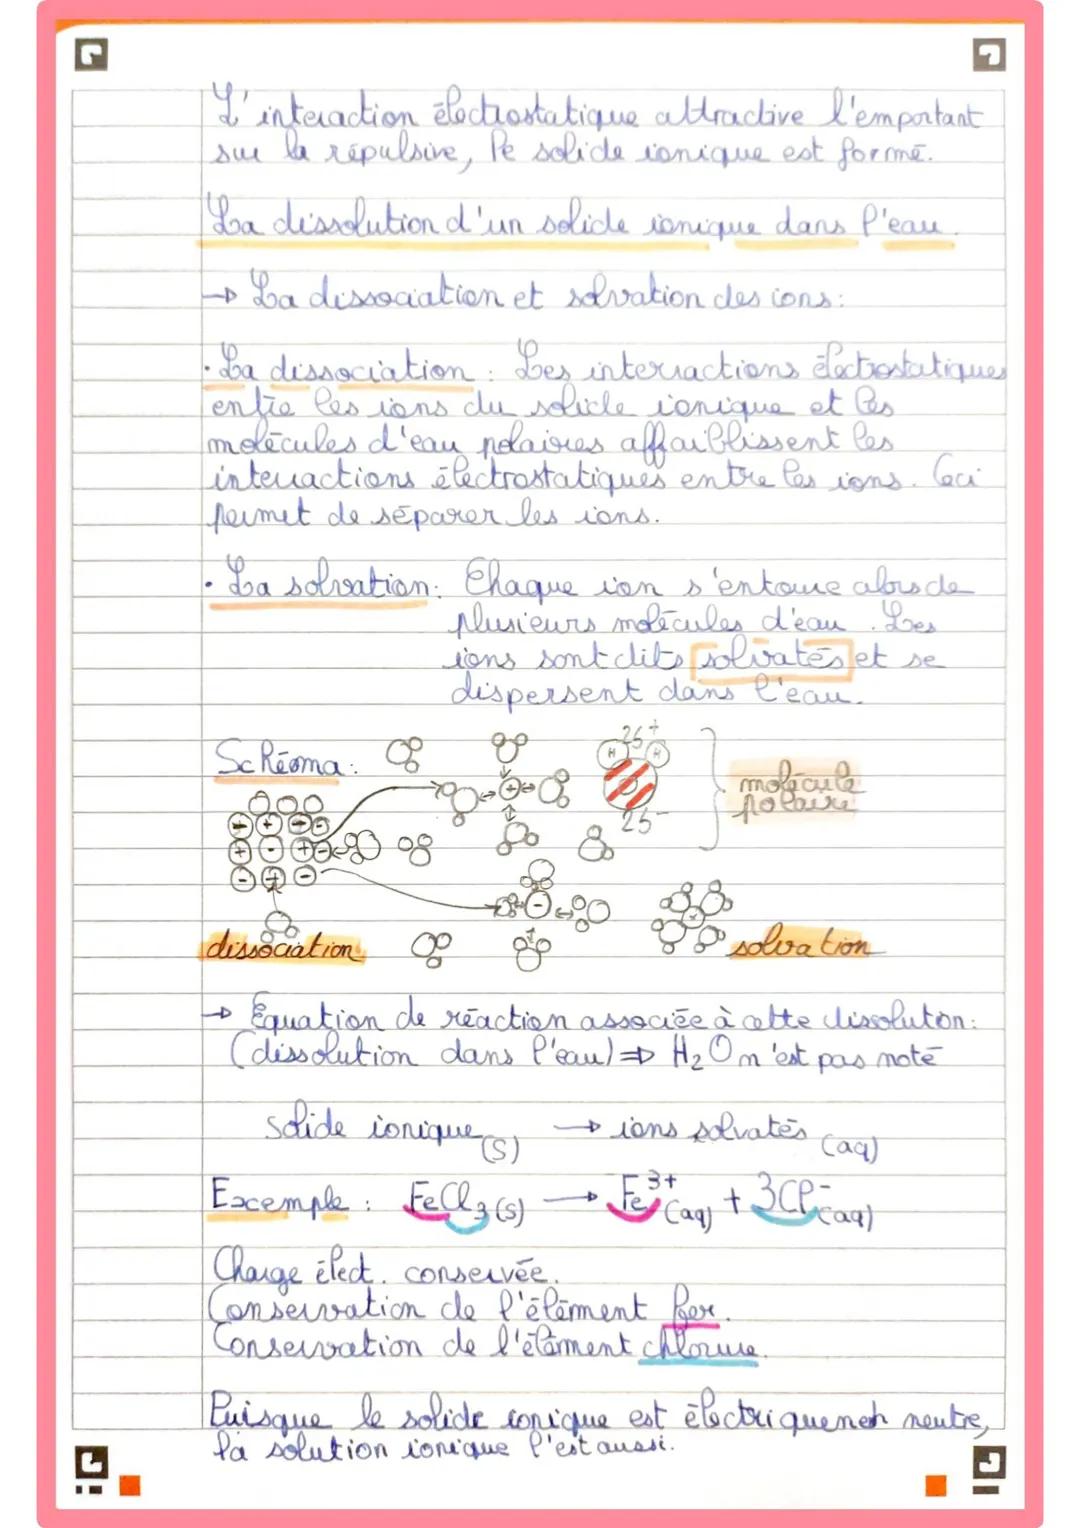 L'interaction électrostatique attractive l'emportant
sur la répulsive, le solide ionique est formé.
La dissolution d'un solide ionique dans l'eau.
→ La dissociation et solvation des ions :
• La dissociation : Les interractions électrostatiques
entre les ions du solide ionique et les
molécules d'eau polaires affaiblissent les
interractions électrostatiques entre les ions. Ceci
permet de séparer les ions.
• La solvation : Chaque ion s'entoure alors de
plusieurs molécules d'eau. Les
ions sont dits solvatés et se
dispersent dans l'eau.
Schéma :
2δ+
H H
2δ-
molécule
polaire
dissociation
solvation
→ Equation de réaction associée à cette dissolution :
(dissolution dans l'eau) ⇒ H₂O n'est pas noté
solide ionique (s) → ions solvatés (aq)
Excemple : FeCl₃ (s) → Fe³⁺ (aq) + 3Cl⁻ (aq)
Charge élect. conservée.
Conservation de l'élément fer.
Conservation de l'élément chlorure.
Puisque le solide ionique est électriquement neutre,
la solution ionique l'est aussi.